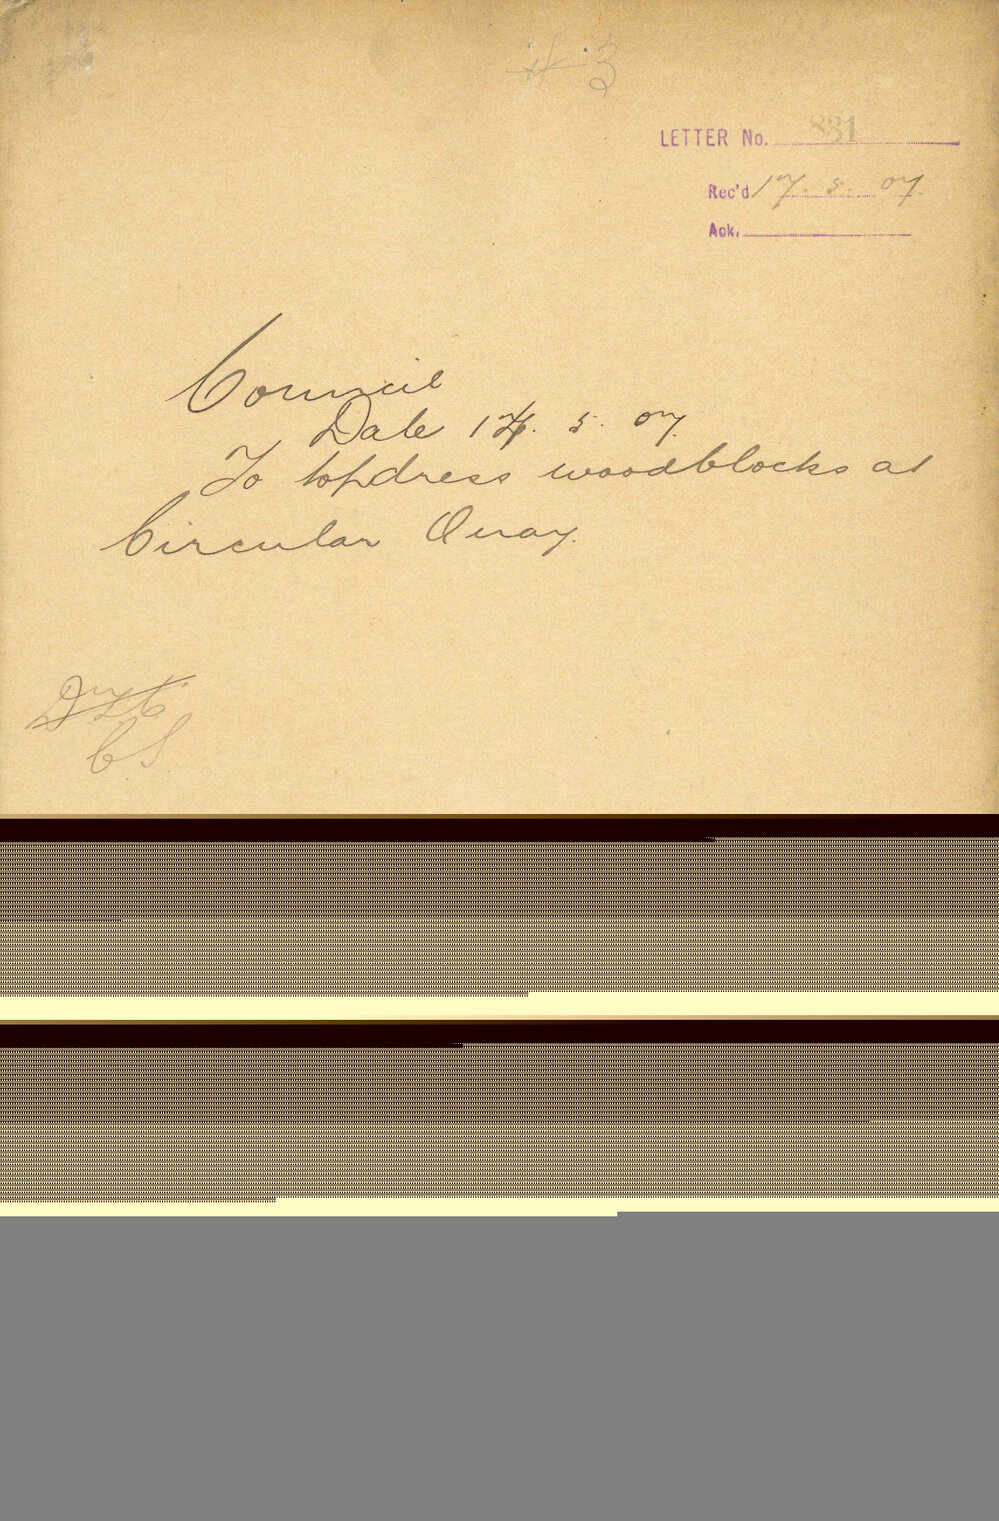 #3
LETTER No. 831
Rec'd 17. 5. 07.
Ack.
Council
Date 14. 5. 07.
To topdress woodblocks at
Circular Quay.
CS